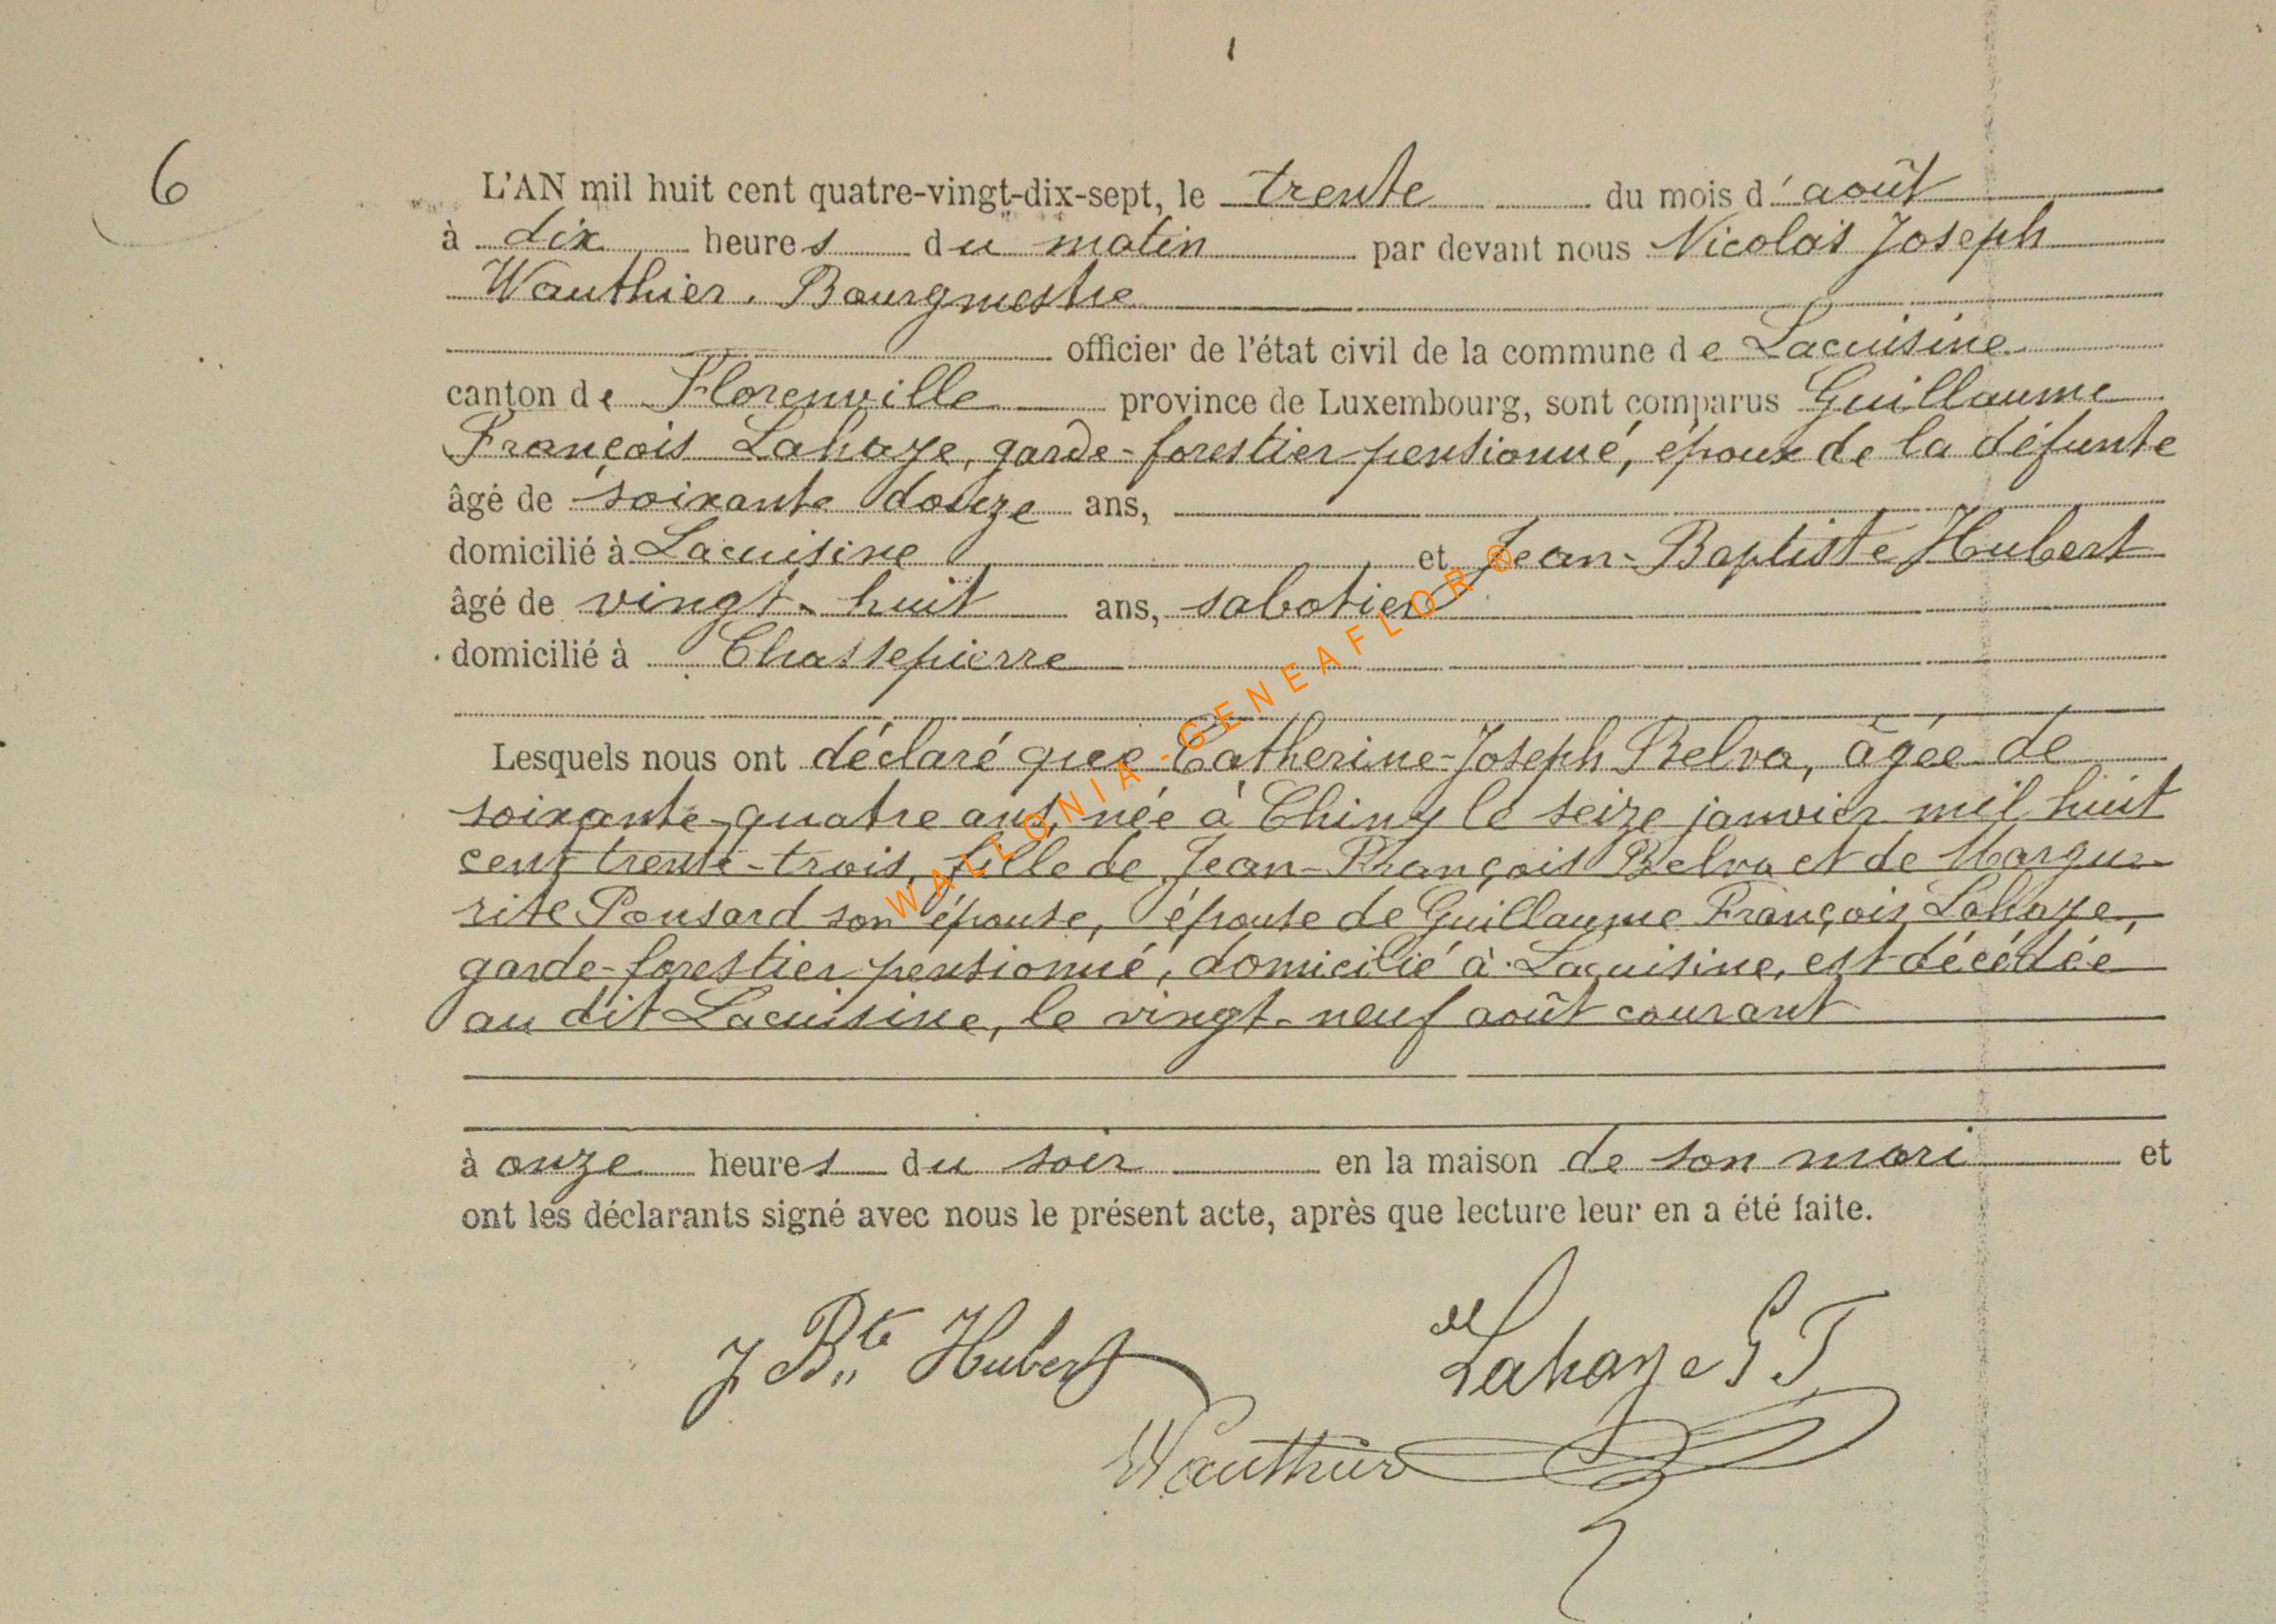 6
L'AN mil huit cent quatre-vingt-dix-sept, le trente du mois d'août
à dix heures du matin par devant nous Nicolas Joseph
Wauthier, Bourgmestre
officier de l'état civil de la commune de Lacuisine
canton de Florenville province de Luxembourg, sont comparus Guillaume
François Lahaye, garde-forestier pensionné, époux de la défunte
âgé de soixante douze ans,
domicilié à Lacuisine et Jean-Baptiste Hubert
âgé de vingt-huit ans, sabotier
domicilié à Chassepierre
Lesquels nous ont déclaré que Catherine-Joseph Belva, âgée de
soixante-quatre ans, née à Chiny le seize janvier mil huit
cent trente-trois, fille de Jean-François Belva et de Margue-
rite Ponsard son épouse, épouse de Guillaume François Lahaye,
garde-forestier pensionné, domicilié à Lacuisine, est décédée
au dit Lacuisine, le vingt-neuf août courant
à onze heures du soir en la maison de son mari et
ont les déclarants signé avec nous le présent acte, après que lecture leur en a été faite.
J Bte Hubert
Lahaye G F
Wauthier
WALLONIA-GENEAFLOR®